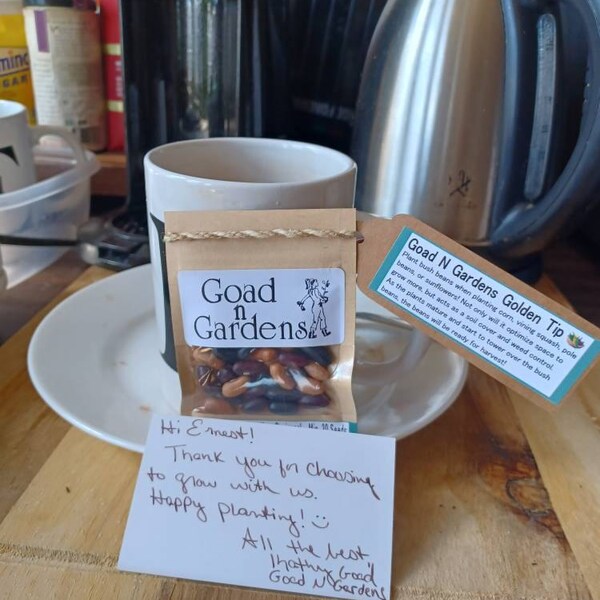 Goad
n
Gardens
Goad N Gardens Golden Tip
Plant bush beans when planting corn, vining squash, pole
beans, or sunflowers! Not only will it optimize space to
grow more, but acts as a soil cover and weed control.
As the plants mature and start to tower over the bush
beans, the beans will be ready for harvest!
Hi Ernest!
Thank you for choosing
to grow with us.
Happy planting! :)
All the best,
Goad
Goad N Gardens